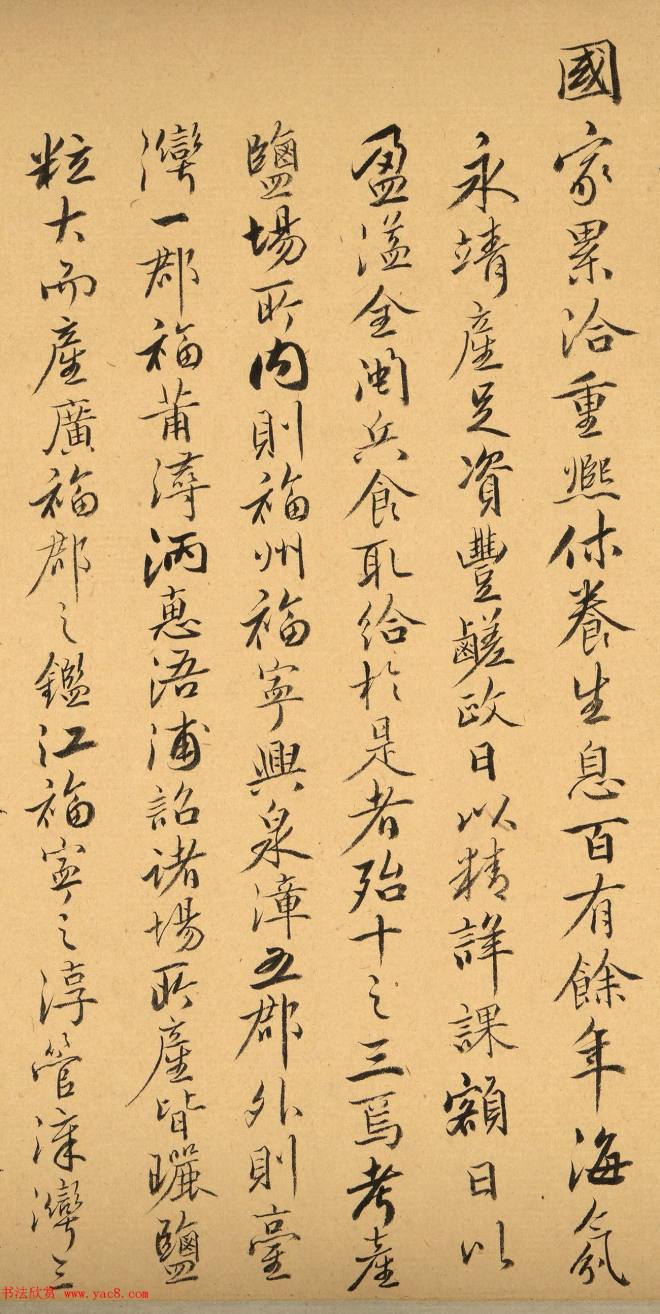 國家累洽重熈休養生息百有餘年海氛
永靖產足資豐鹺政日以精詳課額日以
盈溢全閩兵食取給於是者殆十之三焉考產
鹽場所内則福州福寧興泉漳五郡外則臺
灣一郡福莆潯洒惠浯浦詔諸場所產皆曬鹽
粒大而產廣福郡之鑑江福寧之淳管漳灣三
书法欣赏 www.yac8.com